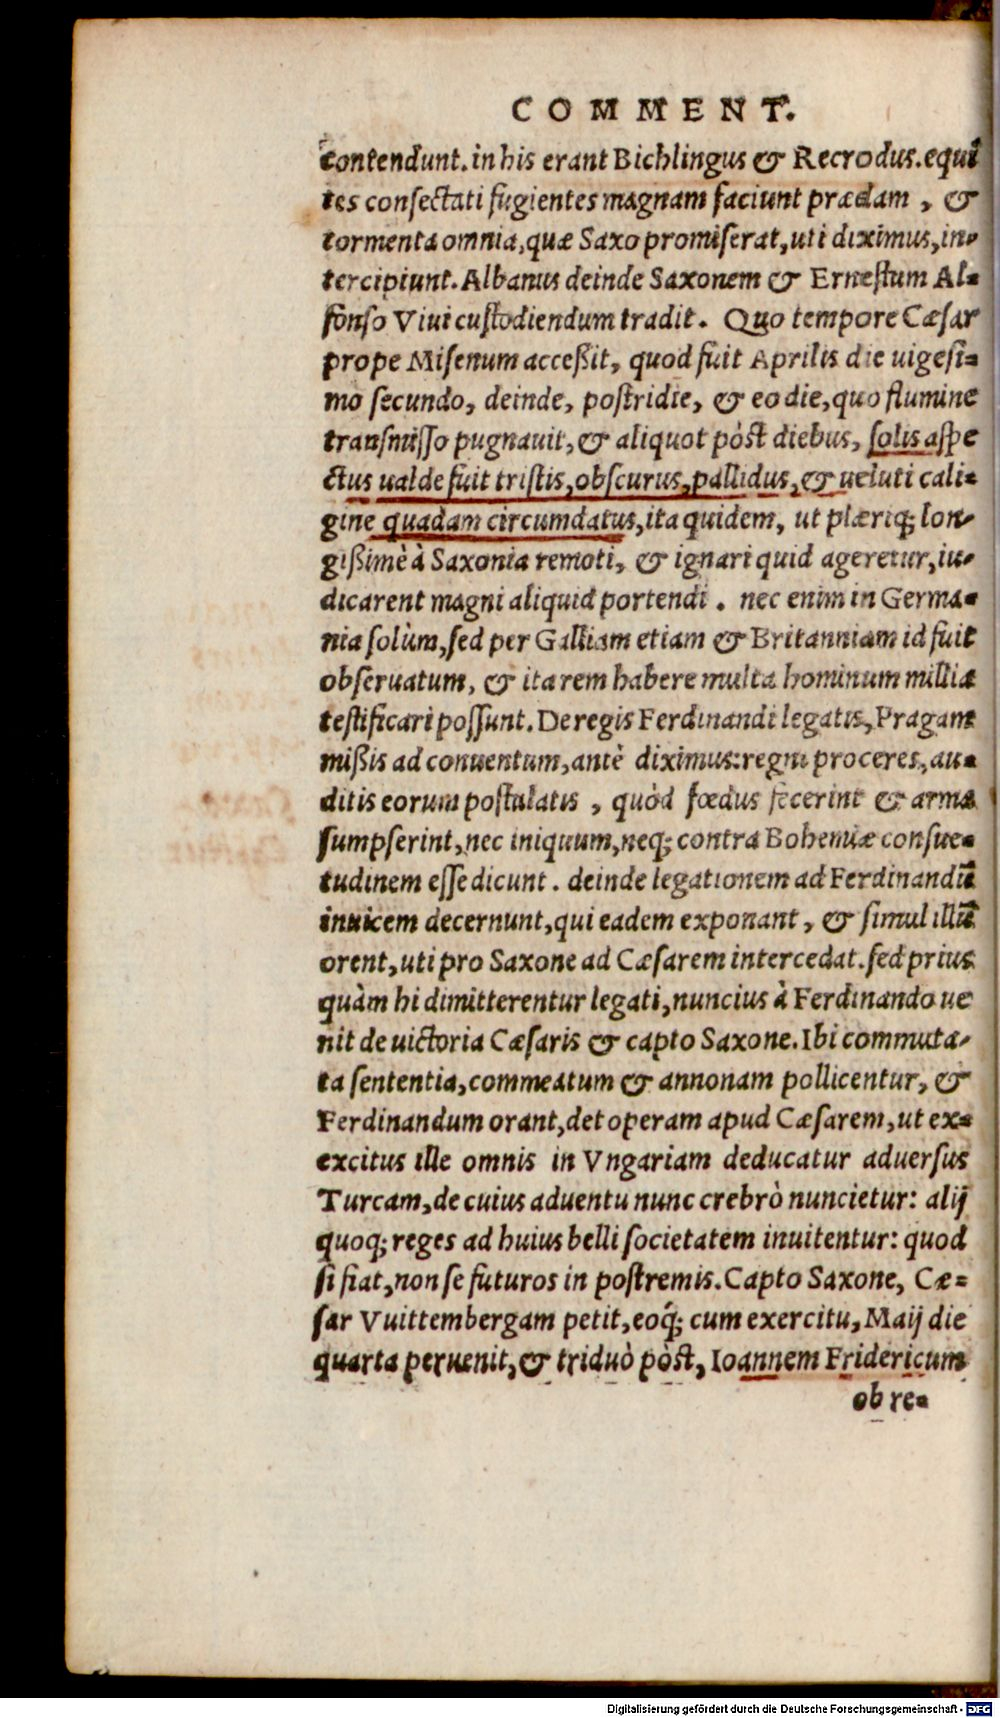 COMMENT.
contendunt. in his erant Bichlingus & Recrodus. equi
tes consectati fugientes magnam faciunt prædam, &
tormenta omnia, quæ Saxo promiserat, uti diximus, in-
tercipiunt. Albanus deinde Saxonem & Ernestum Al-
fonso Viui custodiendum tradit. Quo tempore Cæsar
prope Misenum acceßit, quod fuit Aprilis die uigesi-
mo secundo, deinde, postridie, & eo die, quo flumine
transmisso pugnauit, & aliquot pòst diebus, solis aspe
ctus ualde fuit tristis, obscurus, pallidus, & ueluti cali-
gine quadam circumdatus, ita quidem, ut plæriq; lon-
gißimè à Saxonia remoti, & ignari quid ageretur, iu-
dicarent magni aliquid portendi. nec enim in Germa-
nia solùm, sed per Galliam etiam & Britanniam id fuit
obseruatum, & ita rem habere multa hominum millia
testificari possunt. De regis Ferdinandi legatis, Pragam
mißis ad conuentum, antè diximus: regni proceres, au-
ditis eorum postulatis, quòd fœdus fecerint & arma
sumpserint, nec iniquum, neq; contra Bohemiæ consue-
tudinem esse dicunt. deinde legationem ad Ferdinandũ
inuicem decernunt, qui eadem exponant, & simul illũ
orent, uti pro Saxone ad Cæsarem intercedat. sed prius
quàm hi dimitterentur legati, nuncius à Ferdinando ue
nit de uictoria Cæsaris & capto Saxone. Ibi commuta-
ta sententia, commeatum & annonam pollicentur, &
Ferdinandum orant, det operam apud Cæsarem, ut ex-
excitus ille omnis in Vngariam deducatur aduersus
Turcam, de cuius aduentu nunc crebrò nuncietur: alij
quoq; reges ad huius belli societatem inuitentur: quod
si fiat, non se futuros in postremis. Capto Saxone, Cæ-
sar Vuittembergam petit, eoq́; cum exercitu, Maij die
quarta peruenit, & triduò pòst, Ioannem Fridericum
ob re-
Digitalisierung gefördert durch die Deutsche Forschungsgemeinschaft - DFG